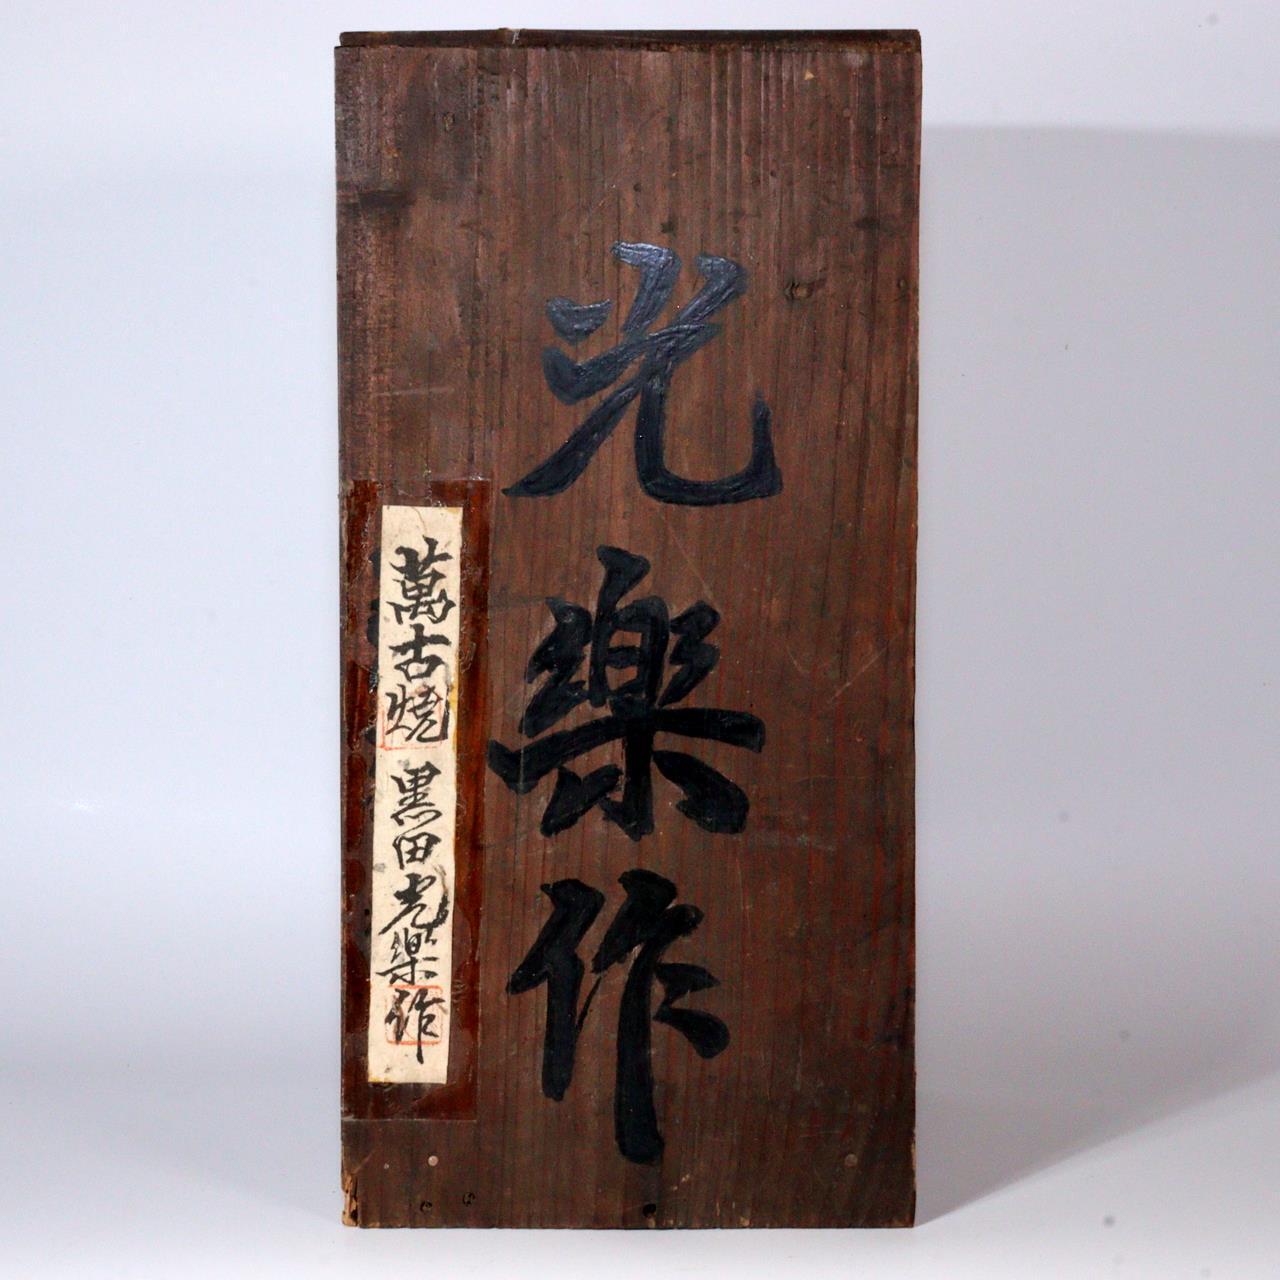 光樂作
萬古燒 黒田光樂作